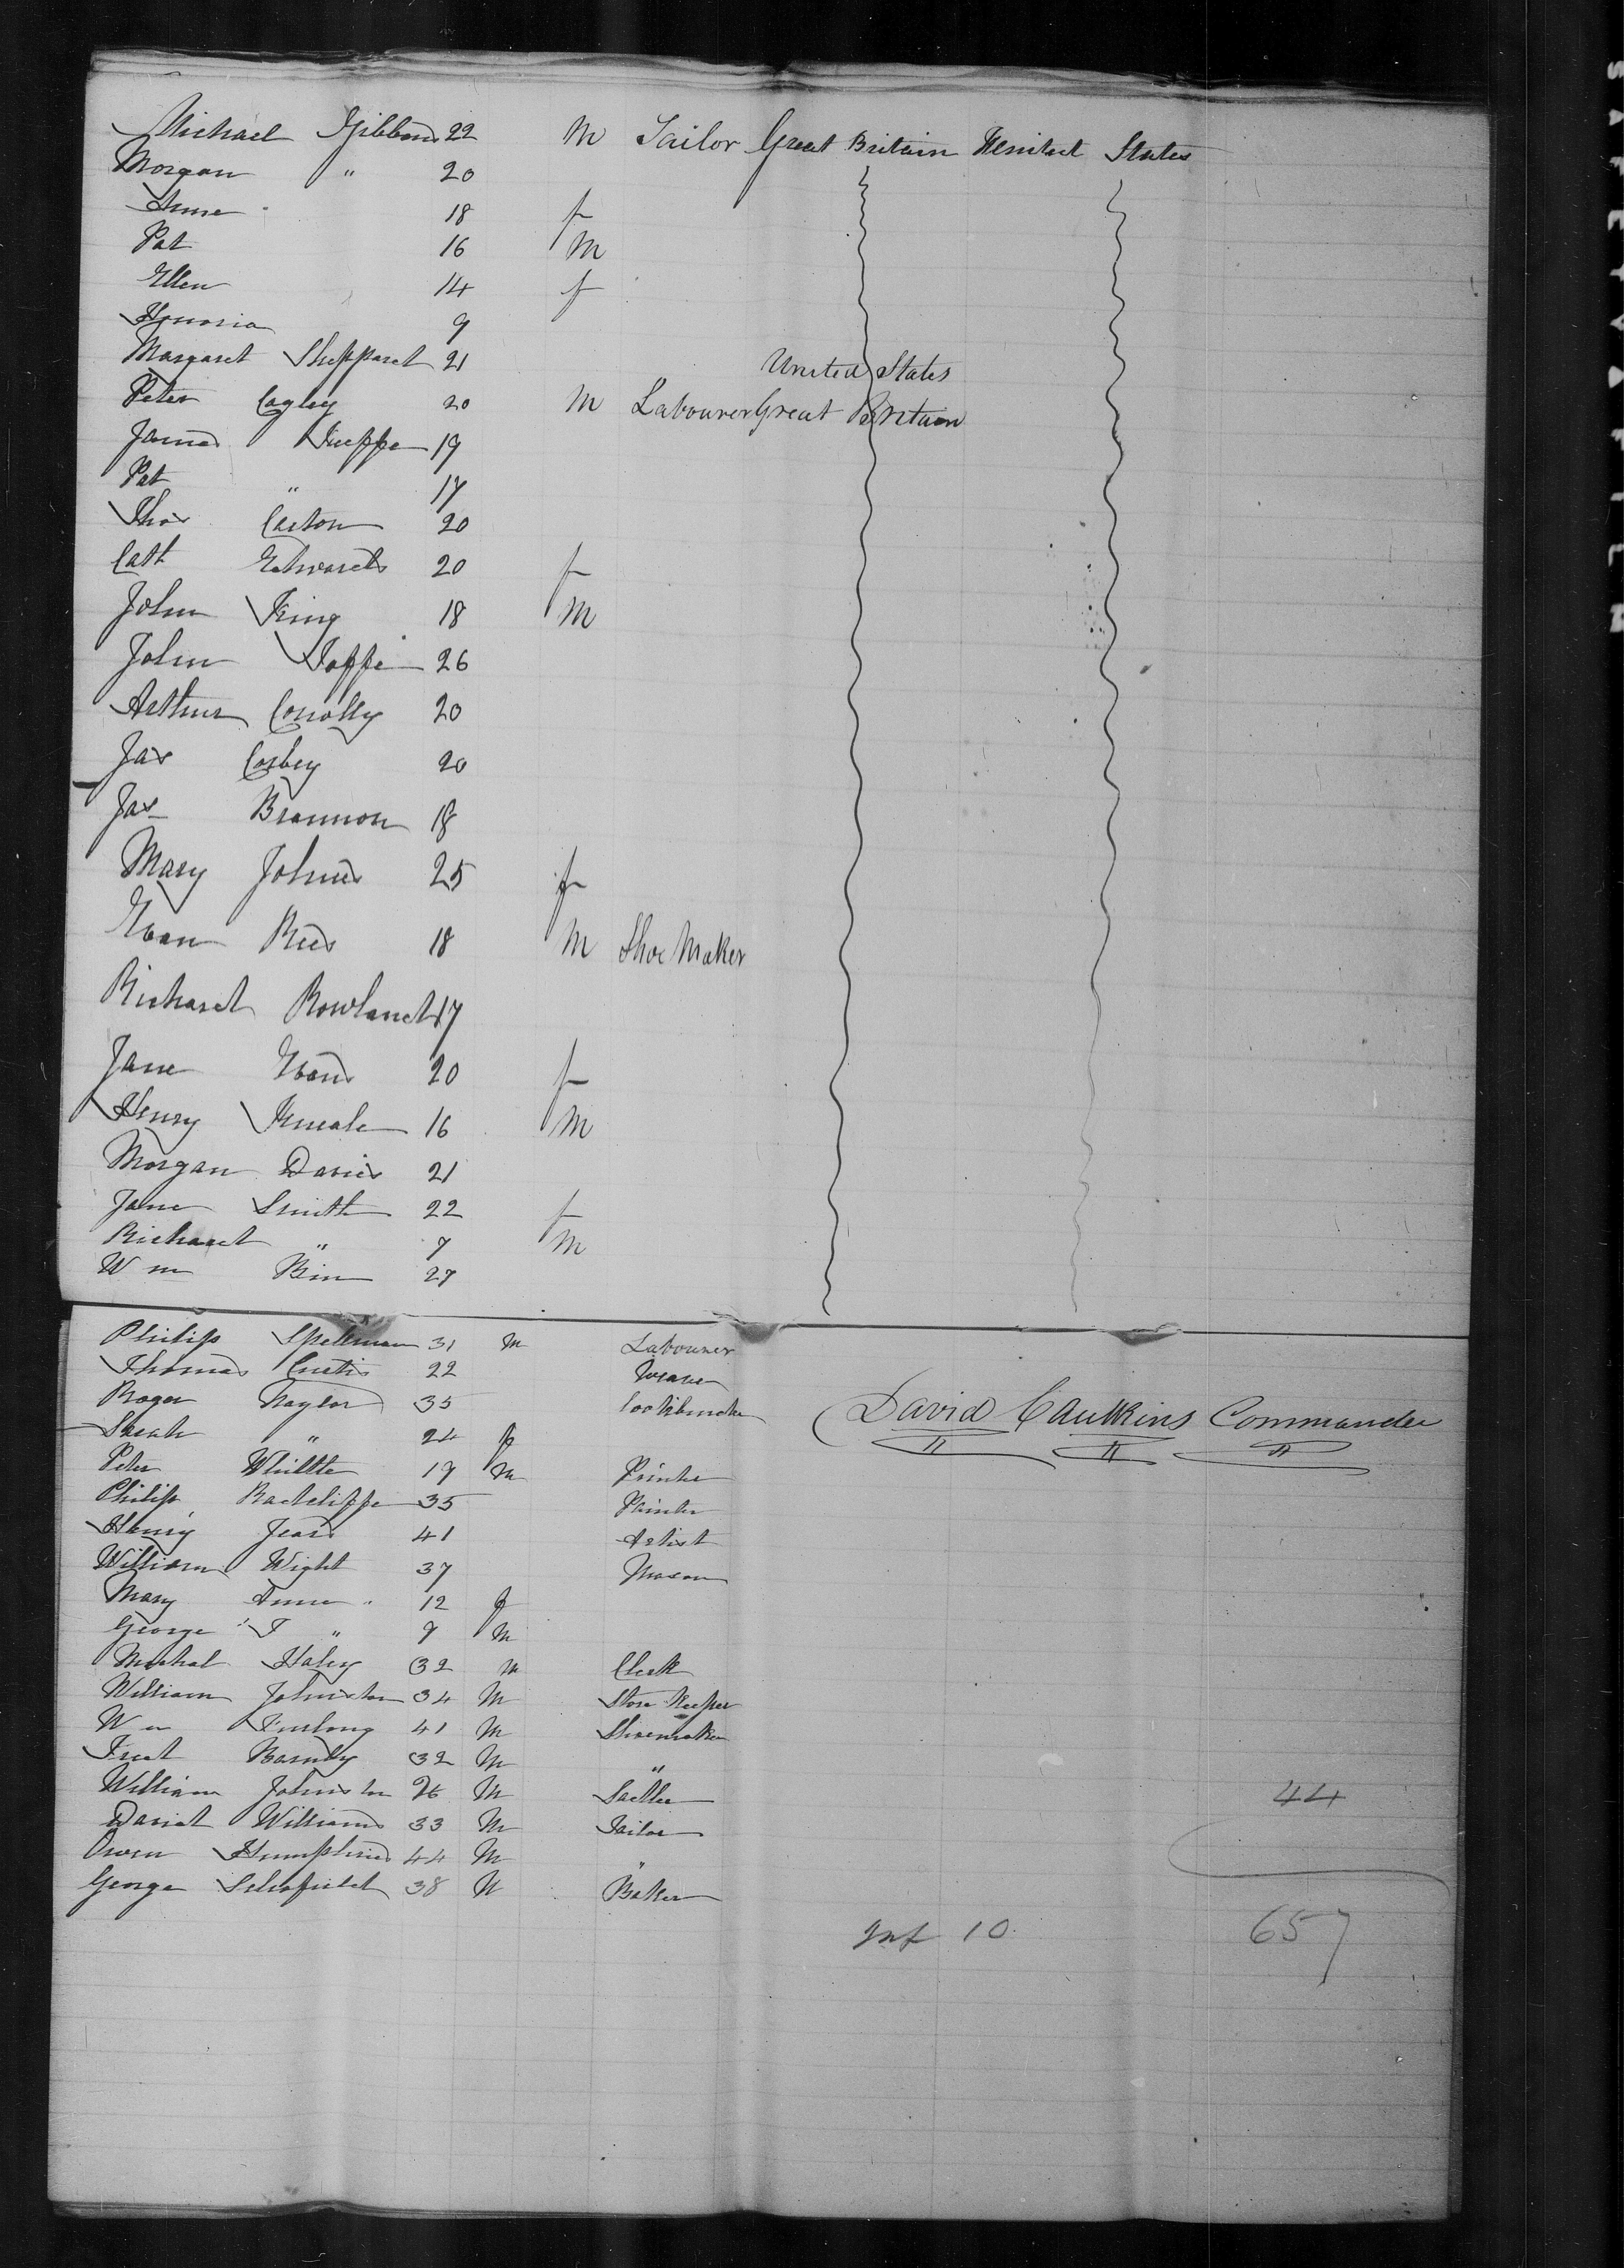 Michael Gibbons 22 M Tailor Great Britain United States
Morgan " 20
Anne 18 f
Pat 16 M
Ellen 14 f
Honoria 9
Margaret Sheppard 21 United States
Peter Cagley 20 M Labourer Great Britain
James 19
Pat " 17
Thos Carton 20
Cath Edwards 20 f
John King 18 M
John 26
Arthur Conolly 20
Jas Corbey 20
Jas Brannon 18
Mary Johnes 25 f
Evan Rees 18 M Shoe Maker
Richard Rowland 17
Jane Evans 20 f
Henry Kneale 16 M
Morgan Davies 21
Jane Smith 22 f
Richard " 7 M
Wm 27
Philip Spelman 31 M Labourer
Thomas Curtis 22 Weaver
Roger Naylor 35
David Caulkins Commander
Sarah " 24 f
Peter Whittle 19 M Printer
Philip Radcliffe 35 Painter
Henry 41 Artist
William Wight 37 Mason
Mary Anne " 12 f
George T " 9 M
Michal Haley 32 M Clerk
William Johnston 34 M Store Keeper
Wm Furlong 41 M Shoemaker
Fred Barnby 32 M "
William Johnston 26 M Sadler
44
David Williams 33 M Tailor
Owen Humphries 44 M "
George Schofield 38 M Baker
Inf 10 657